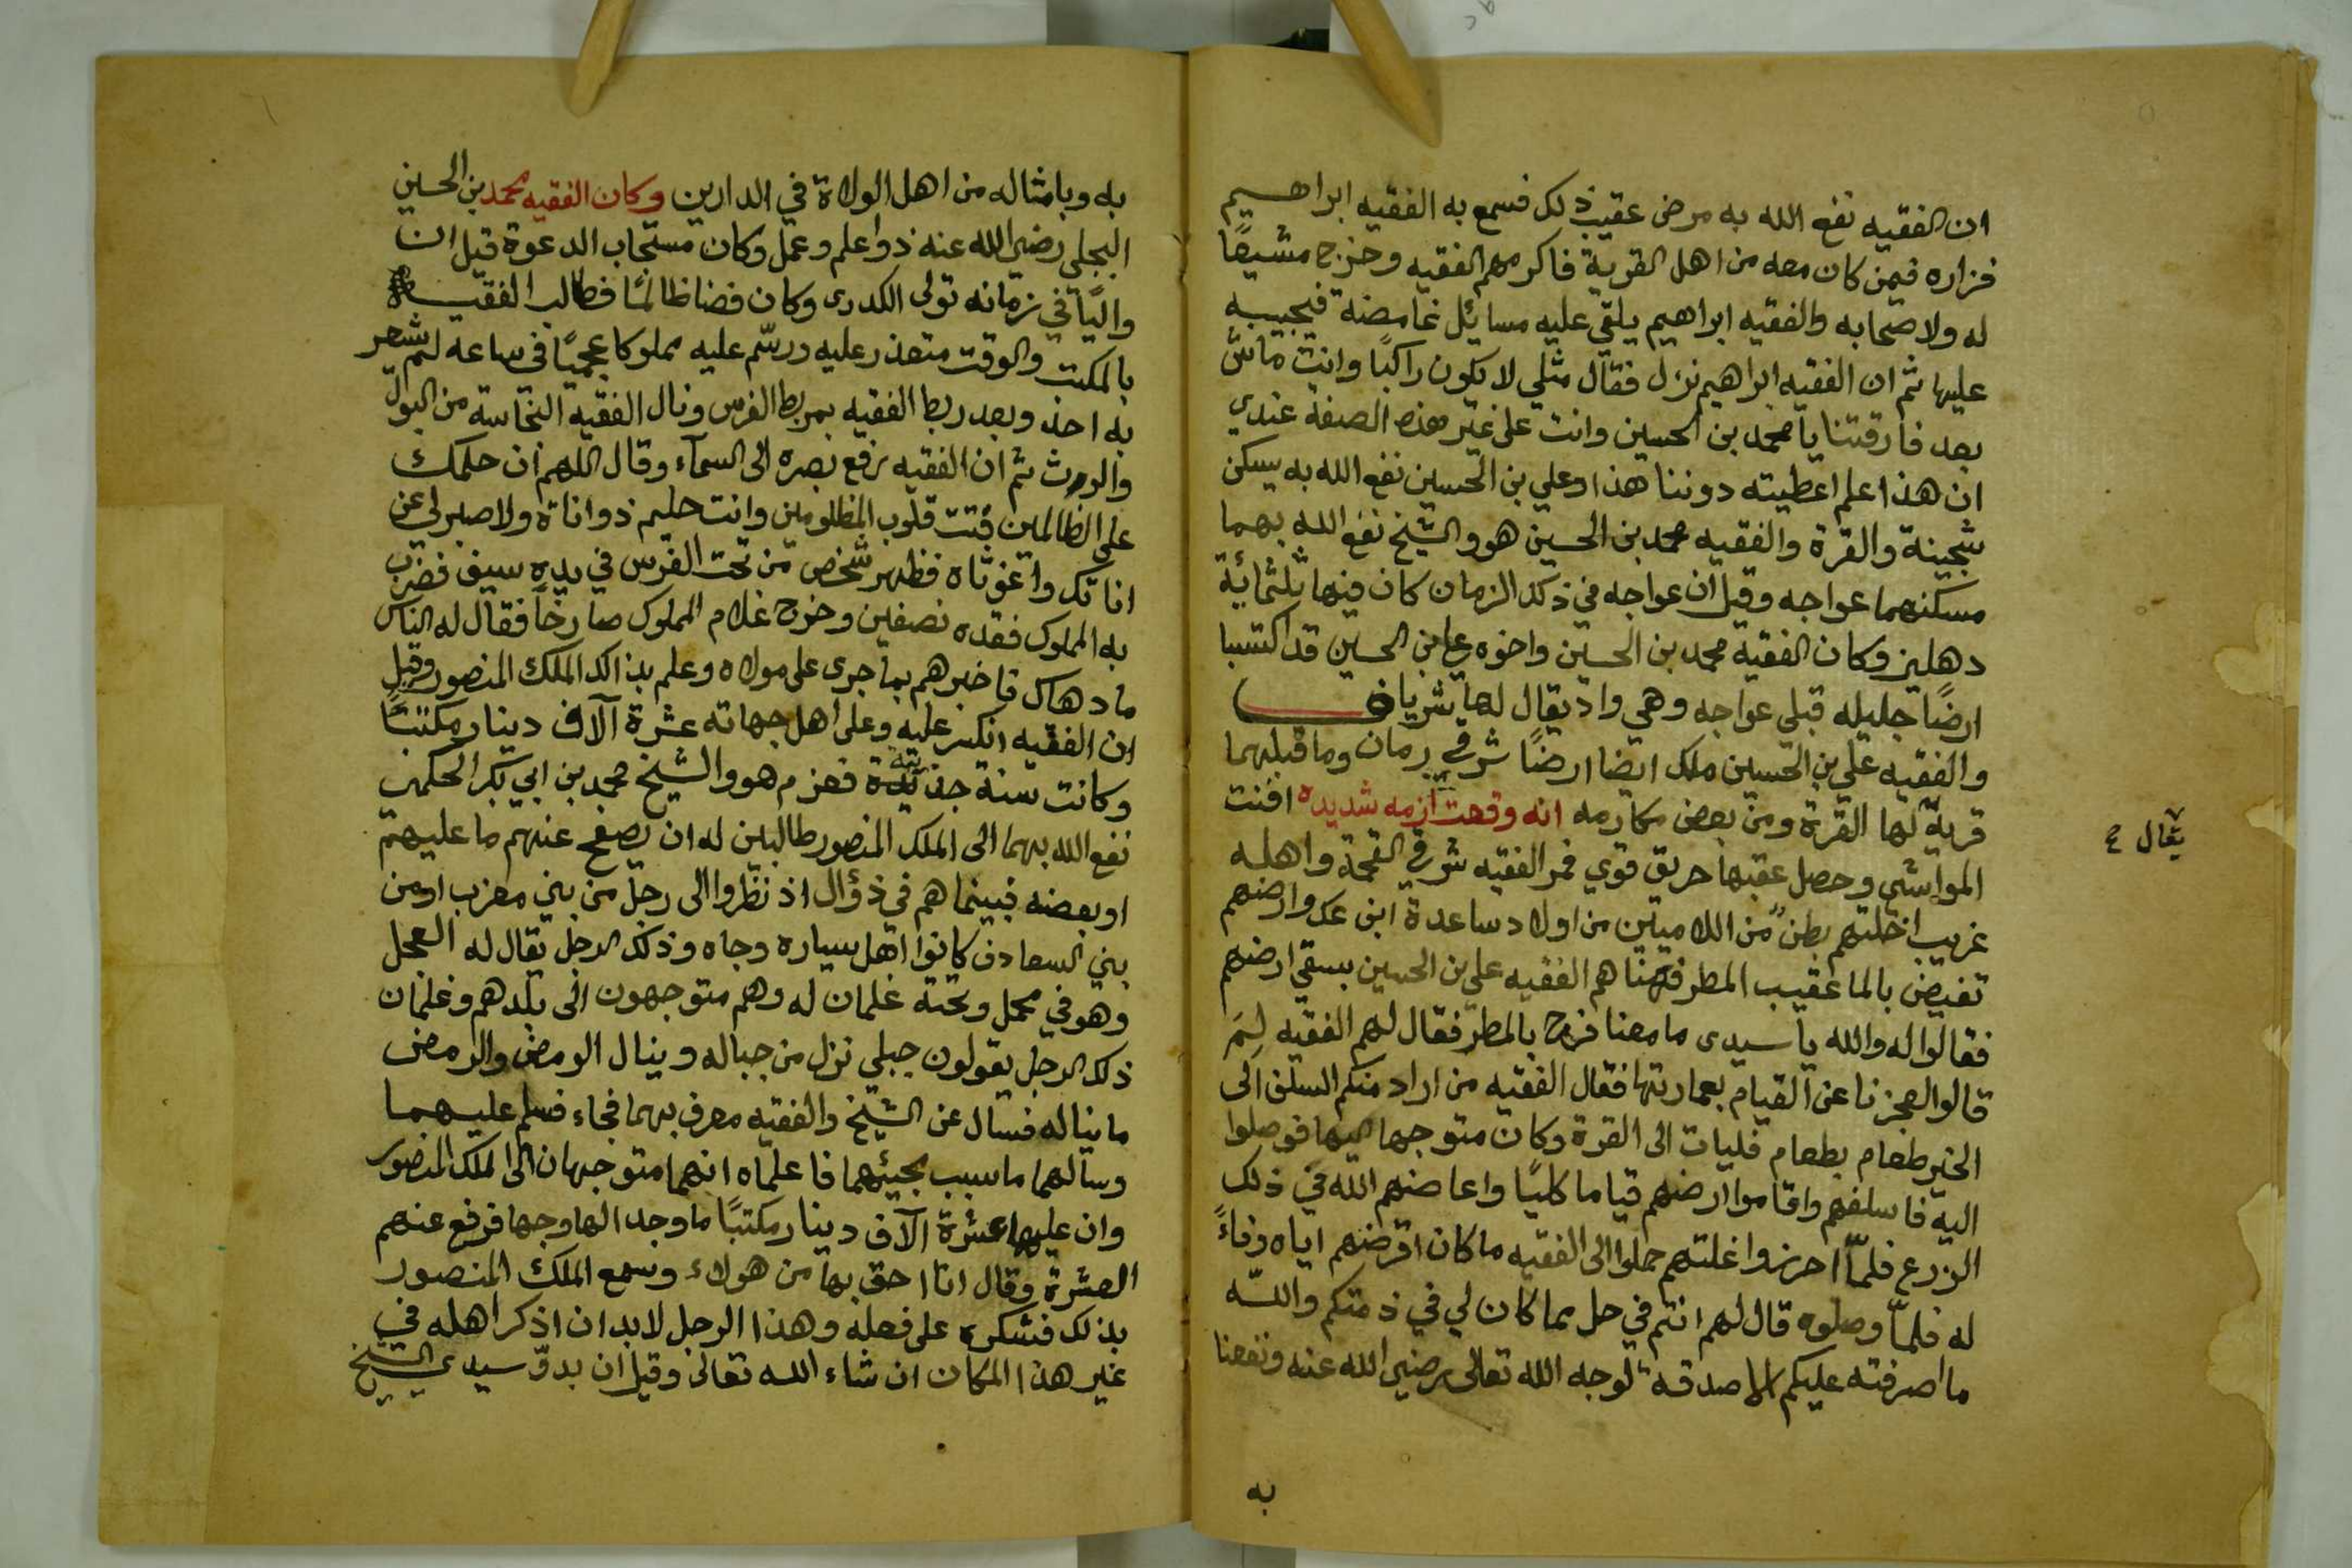 ان الفقيه نفع الله به مرض عقيب ذلك فسمع به الفقيه ابراهيم
فزاره فيمن كان معه من اهل القرية فاكرمهم الفقيه وخرج مشيعًا
له ولاصحابه والفقيه ابراهيم يلقي عليه مسائل غامضة فيجيبه
عليها ثم ان الفقيه ابراهيم نزل فقال مثلي لا يكون راكبًا وانت ماش
بعد فارقتنا يا محمد بن الحسين وانت على غير هذه الصفة عندي
ان هذا علم اعطيته دوننا هذا وعلي بن الحسين نفع الله به يسكن
شجينة والقرة والفقيه محمد بن الحسين هو والشيخ نفع الله بهما
مسكنهما عواجه وقيل ان عواجه في ذلك الزمان كان فيها ثلثمائة
دهليز وكان الفقيه محمد بن الحسين واخوه علي بن الحسين قد اكتسبا
ارضًا جليله قبلي عواجه وهي واد يقال لها شريان
والفقيه علي بن الحسين ملك ايضا ارضًا شرقي رمان وما قبليهما
قرية لها القرة ومن بعض مكارمه انه وقعت ازمه شديده افنت
يقال ع
المواشي وحصل عقبها حريق قوي فمر الفقيه شرقي القحمة واهله
غريب اخلتهم بطن من اللاميين من اولاد ساعدة ابن عك وارضهم
تفيض بالما عقيب المطر فهناهم الفقيه علي بن الحسين بسقي ارضهم
فقالوا له والله يا سيدى ما معنا فرح بالمطر فقال لهم الفقيه لِمَ
قالوا لعجزنا عن القيام بعمارتها فقال الفقيه من اراد منكم السلف الى
الخير طعام بطعام فليات الى القرة وكان متوجها اليها فوصلوا
اليه فاسلفهم واقاموا ارضهم قياما كليًا واعاضهم الله في ذلك
الزرع فلمّا احرزوا غلتهم حملوا الى الفقيه ما كان اقرضهم اياه وفاءً
له فلمّا وصلوه قال لهم انتم في حل مما كان لي في ذمتكم والله
ما اصرفته عليكم الا صدقه لوجه الله تعالى رضي الله عنه ونفعنا
به
به وبامثاله من اهل الولاة في الدارين وكان الفقيه محمد بن الحسين
البجلي رضي الله عنه ذوا علم وعمل وكان مستجاب الدعوة قيل ان
واليًا في زمانه تولى الكدرى وكان فضا ظالمًا فطالب الفقيه
بالمكتب والوقت متعذر عليه ورسّم عليه مملوكا عجميًا في ساعه لم يشعر
به احد وبعد ربط الفقيه بمربط الفرس ونال الفقيه النجاسة من البول
والروث ثم ان الفقيه رفع بصره الى السمآء وقال اللهم ان حلمك
على الظالمين فتت قلوب المظلومين وانت حليم ذو اناة ولا صبر لي عن
اناتك واغوثاه فظهر شخص من تحت الفرس في يده سيف فضرب
به المملوك فقده نصفين وخرج غلام المملوك صارخًا فقال له الناس
ما دهاك فاخبرهم بما جرى على مولاه وعلم بذالك الملك المنصور وقيل
ان الفقيه انكسر عليه وعلى اهل جهاته عشرة آلاف دينار مكتبًا
وكانت سنة جدبة فعزم هو والشيخ محمد بن ابي بكر الحكمي
نفع الله بهما الى الملك المنصور طالبين له ان يصفح عنهم ما عليهم
او بعضه فبينما هم في ذؤال اذ نظروا الى رجل من بني معزب او من
بني السعادن كانوا اهل سياره وجاه وذلك الرجل يقال له العجل
وهو في محمل وتحته غلمان له وهم متوجهون الى بلدهم وغلمان
ذلك الرجل يقولون جبلي نزل من جباله وينال الومض والرمض
ما يناله فسال عن الشيخ والفقيه معرف بهما فجاء فسلم عليهما
وسالهما ما سبب مجيئهما فاعلماه انهما متوجهان الى الملك المنصور
وان عليهما عشرة آلاف دينار مكتبًا ما وجد الها وجها فرفع عنهم
العشرة وقال انا احق بها من هولاء وسمع الملك المنصور
بذلك فشكره على فعله وهذا الرجل لابد ان اذكر اهله في
غير هذا المكان ان شاء الله تعالى وقيل ان بدوّ سيدي الشيخ